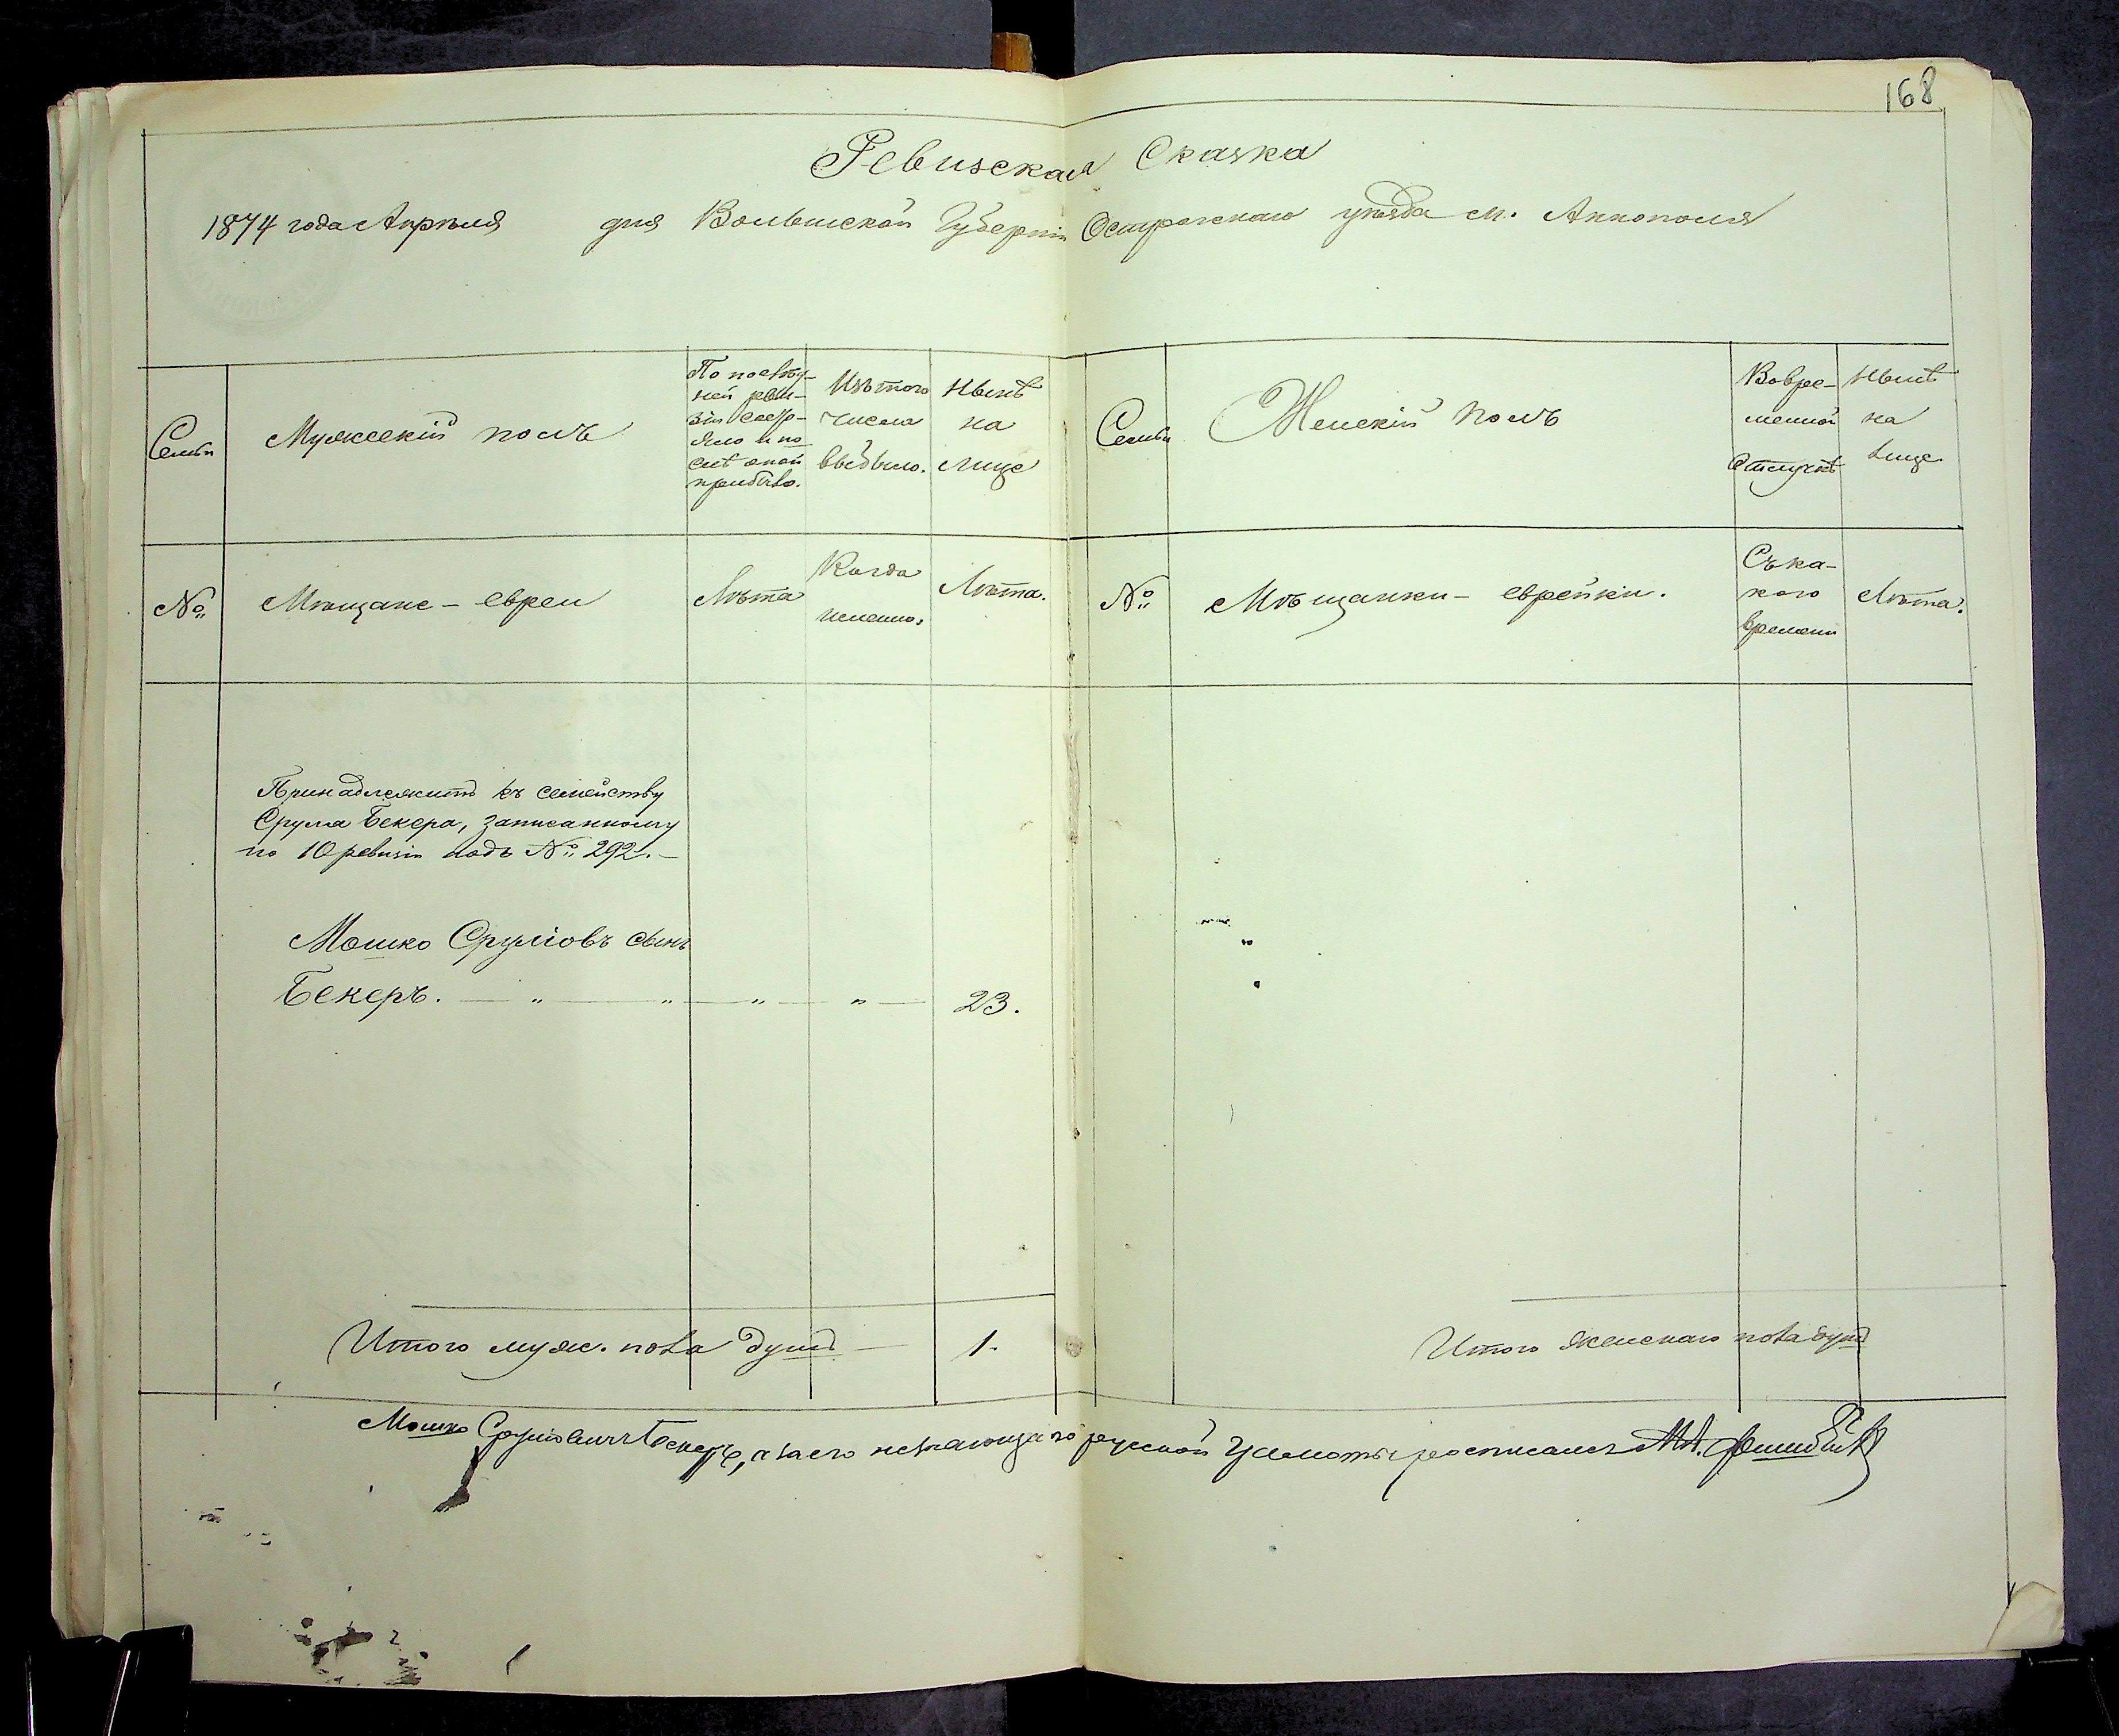 168
Ревизская Сказка
1874 года Апрѣля дня Волынской Губерніи Острожскаго уѣзда м. Аннополя
Семьи
Мужескій полъ
По послѣд-
ней реви-
зіи состо-
яло и по
слѣ оной
прибыло.
Изъ того
числа
выбыло.
Нынѣ
на
лице
Семьи
Женскій полъ
Вовре-
менной
отлучкѣ
Нынѣ
на
лице
№
Мѣщане - евреи
Лѣта
Когда
именно.
Лѣта.
№
Мѣщанки - еврейки.
Съ ка-
кого
времени
Лѣта.
Принадлежитъ къ семейству
Срула Бекера, записанному
по 10 ревизіи подъ № 292. -
Мошко Сруліовъ сынъ
Бекеръ. - " - " - " - " - 23.
Итого муж. пола душъ - 1.
Итого женскаго пола душъ
Мошко Сруліовичъ Бекеръ, а за его незнающаго русской грамоты росписался